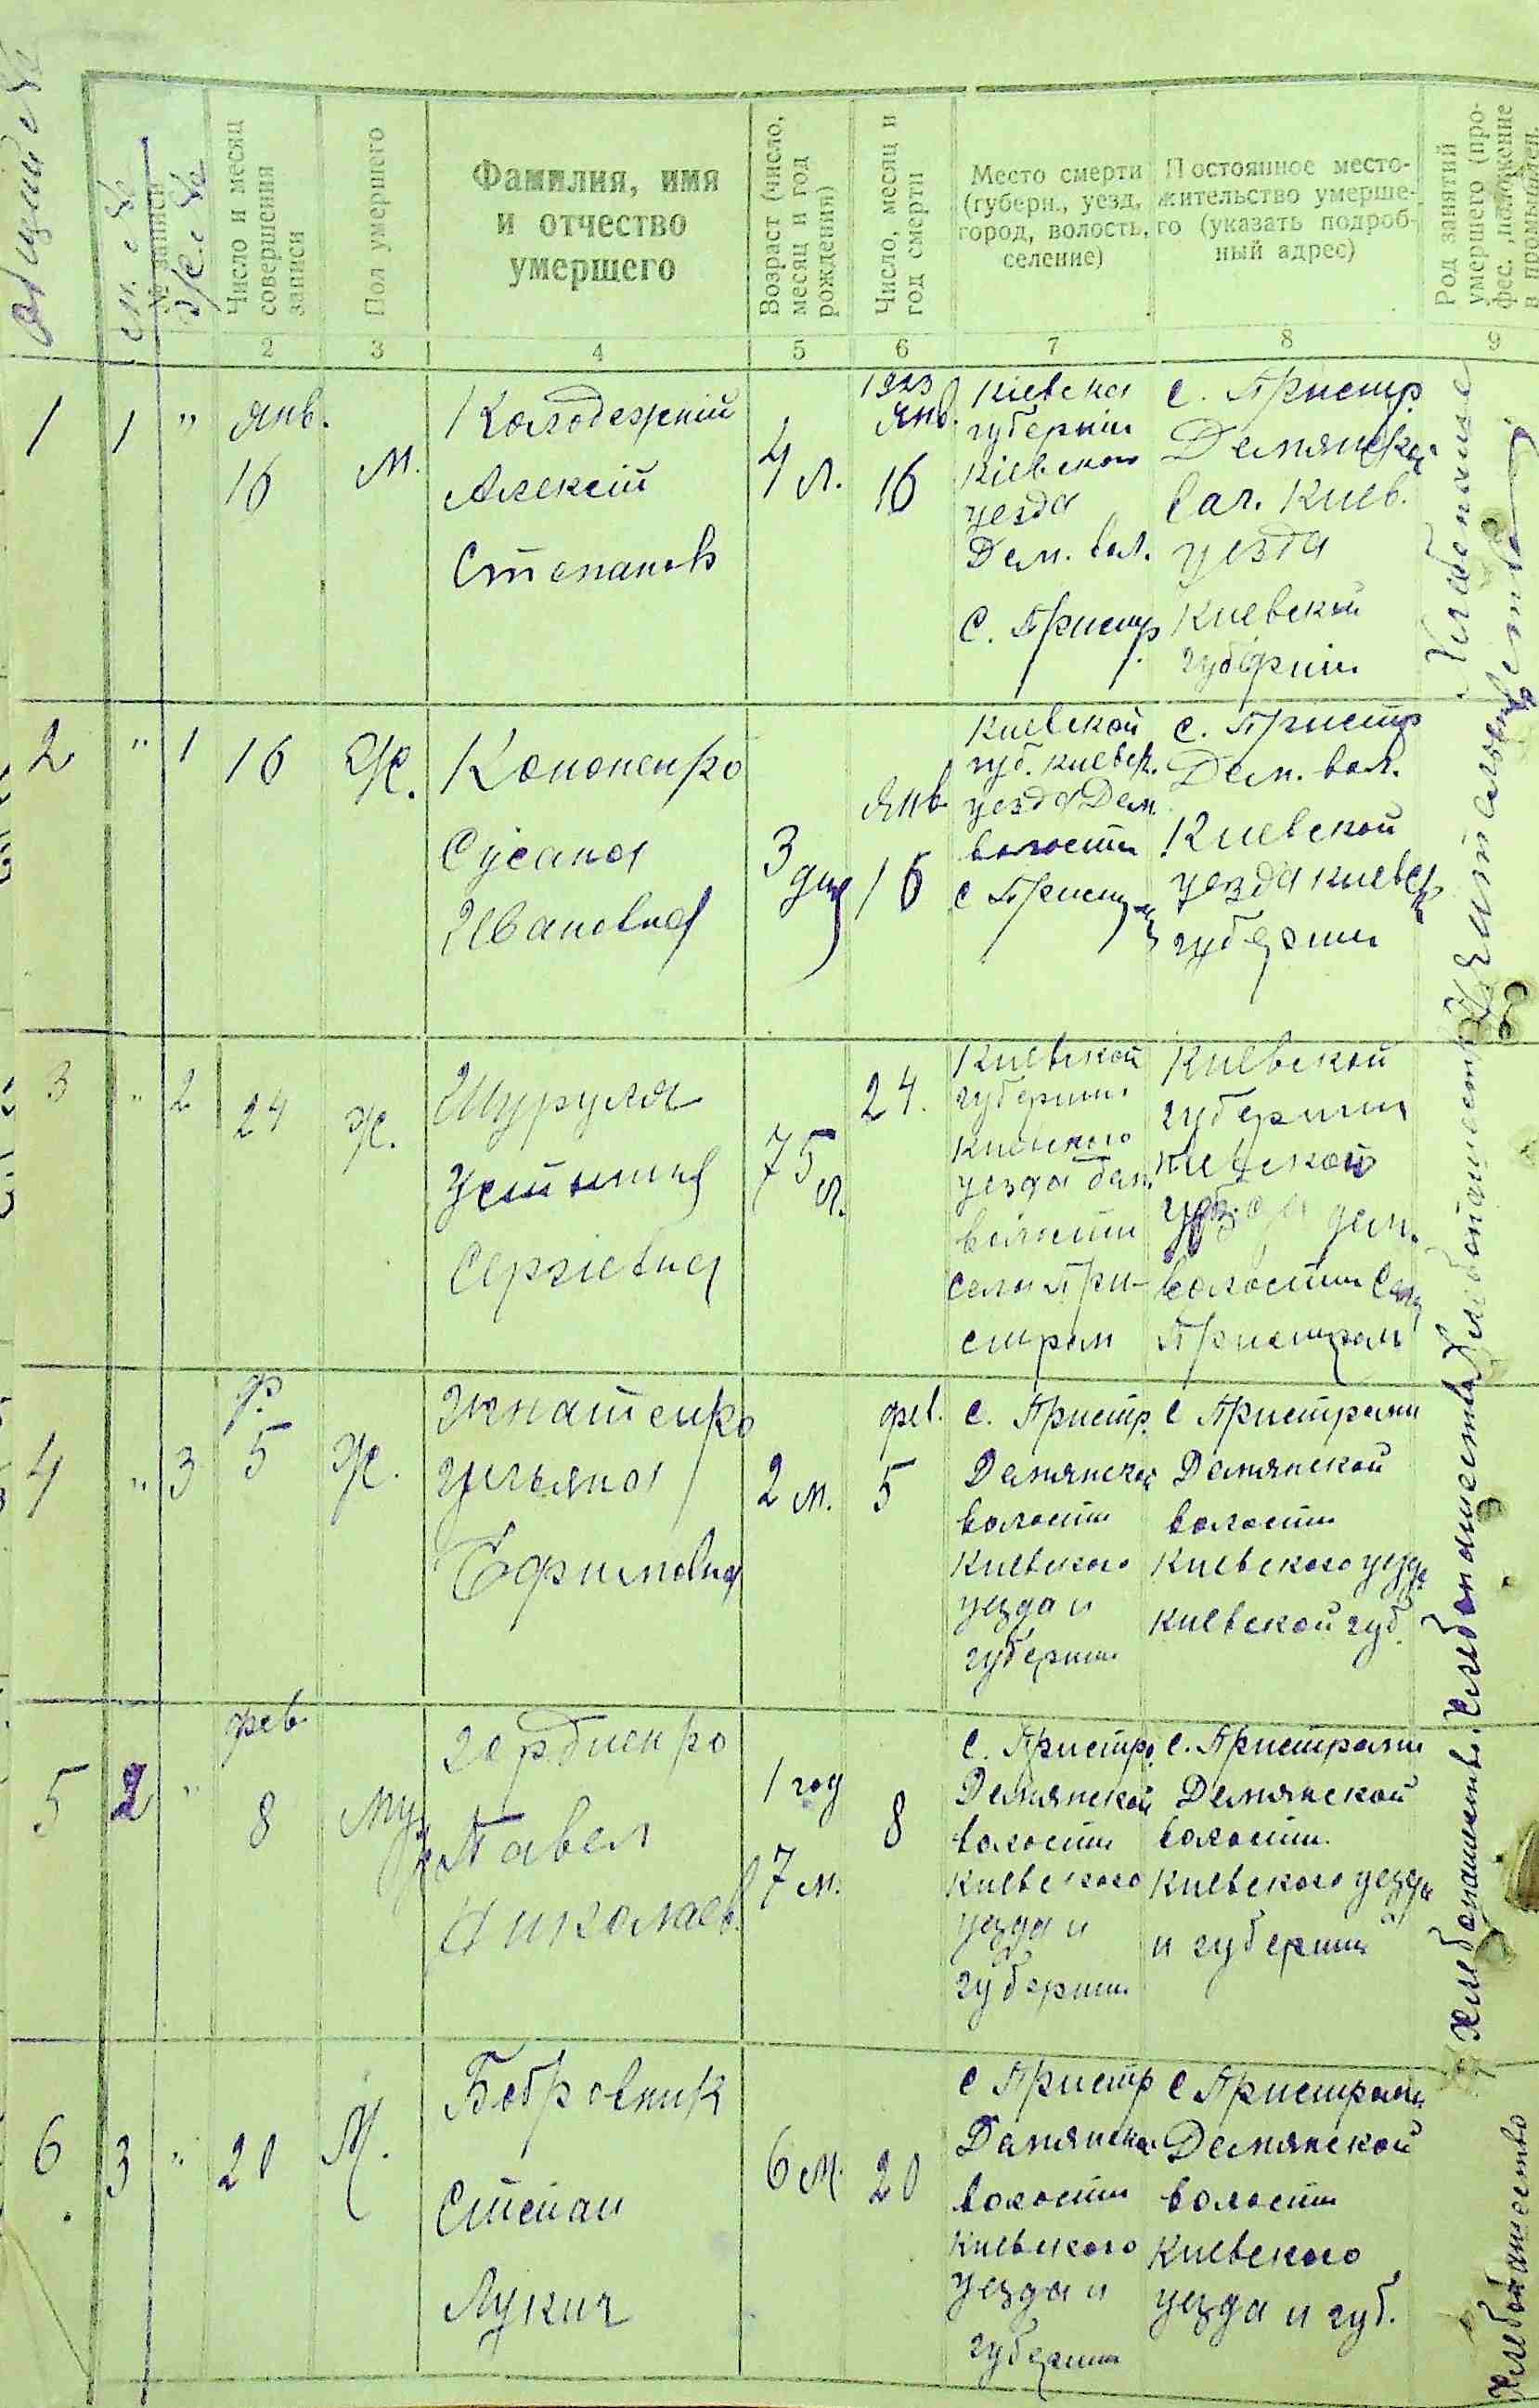 общий №
м. с №
№ записи
ж. с №
Число и месяц
совершения
записи
Пол умершего
Фамилия, имя
и отчество
умершего
Возраст (число,
месяц и год
рождения)
Число, месяц и
год смерти
Место смерти
(губерн., уезд,
город, волость,
селение)
Постоянное место-
жительство умерше-
го (указать подроб-
ный адрес)
Род занятий
умершего (про-
фес., положение
в промысле)
2
3
4
5
6
7
8
9
1
1
"
янв.
16
м.
Колодезский
Алексій
Степанов
4 л.
1923
янв.
16
Кіевска
губерніи
Кіевском
уезда
Дем. вол.
с. Пристр.
с. Пристр.
Демянской
вол. Киев.
уезда
Киевской
губерніи
2
"
1
16
Ж.
Кононенко
Сусана
Ивановна
3 дня
янв
16
Киевской
губ. Киевск.
уезда Дем.
волости
с Пристр
с. Пристр
Дем. вол.
Киевской
уезда Киевск
губернии
3
"
2
24
Ж.
Шуруля
Устинья
Сергіевна
75 л.
24.
Киевской
губернии
Киевского
уезда Дем.
волости
села При-
стром
Киевской
губернии
Киевской
уезда дем.
волости села
Пристром
4
"
3
ф.
5
Ж.
Игнатенко
Ульяна
Ефимовна
2 м.
фев.
5
с. Пристр.
Демянской
волости
Киевского
уезда и
губернии
с Пристроми
Демянской
волости
Киевского уезда
Киевской губ.
5
2
"
фев
8
Муж
Гордиенко
Павел
Николаев.
1 год
7 м.
8
с. Пристро
Демянской
волости
Киевского
уезда и
губернии
с. Пристроми
Демянской
волости.
Киевского уезда
и губернии
6
3
"
20
М.
Бобровник
Степан
Лукич
6 м.
20
с Пристр
Демянской
волости
Киевского
уезда и
губернии
с Пристроми
Демянской
волости
Киевского
уезда и губ.
Хлебопашество
Хлебопашество
Хлебопашество
Хлебопашество